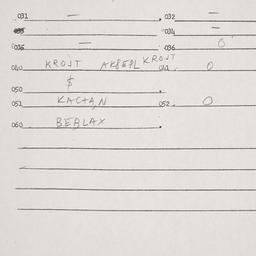 031 — . 032 —
033 — 034 —
035 — 036 0
040 KROJT AKBEPL KROJT 041 . 0
050 $ .
051 KACTAN 052 . 0
060 BEBLAX .